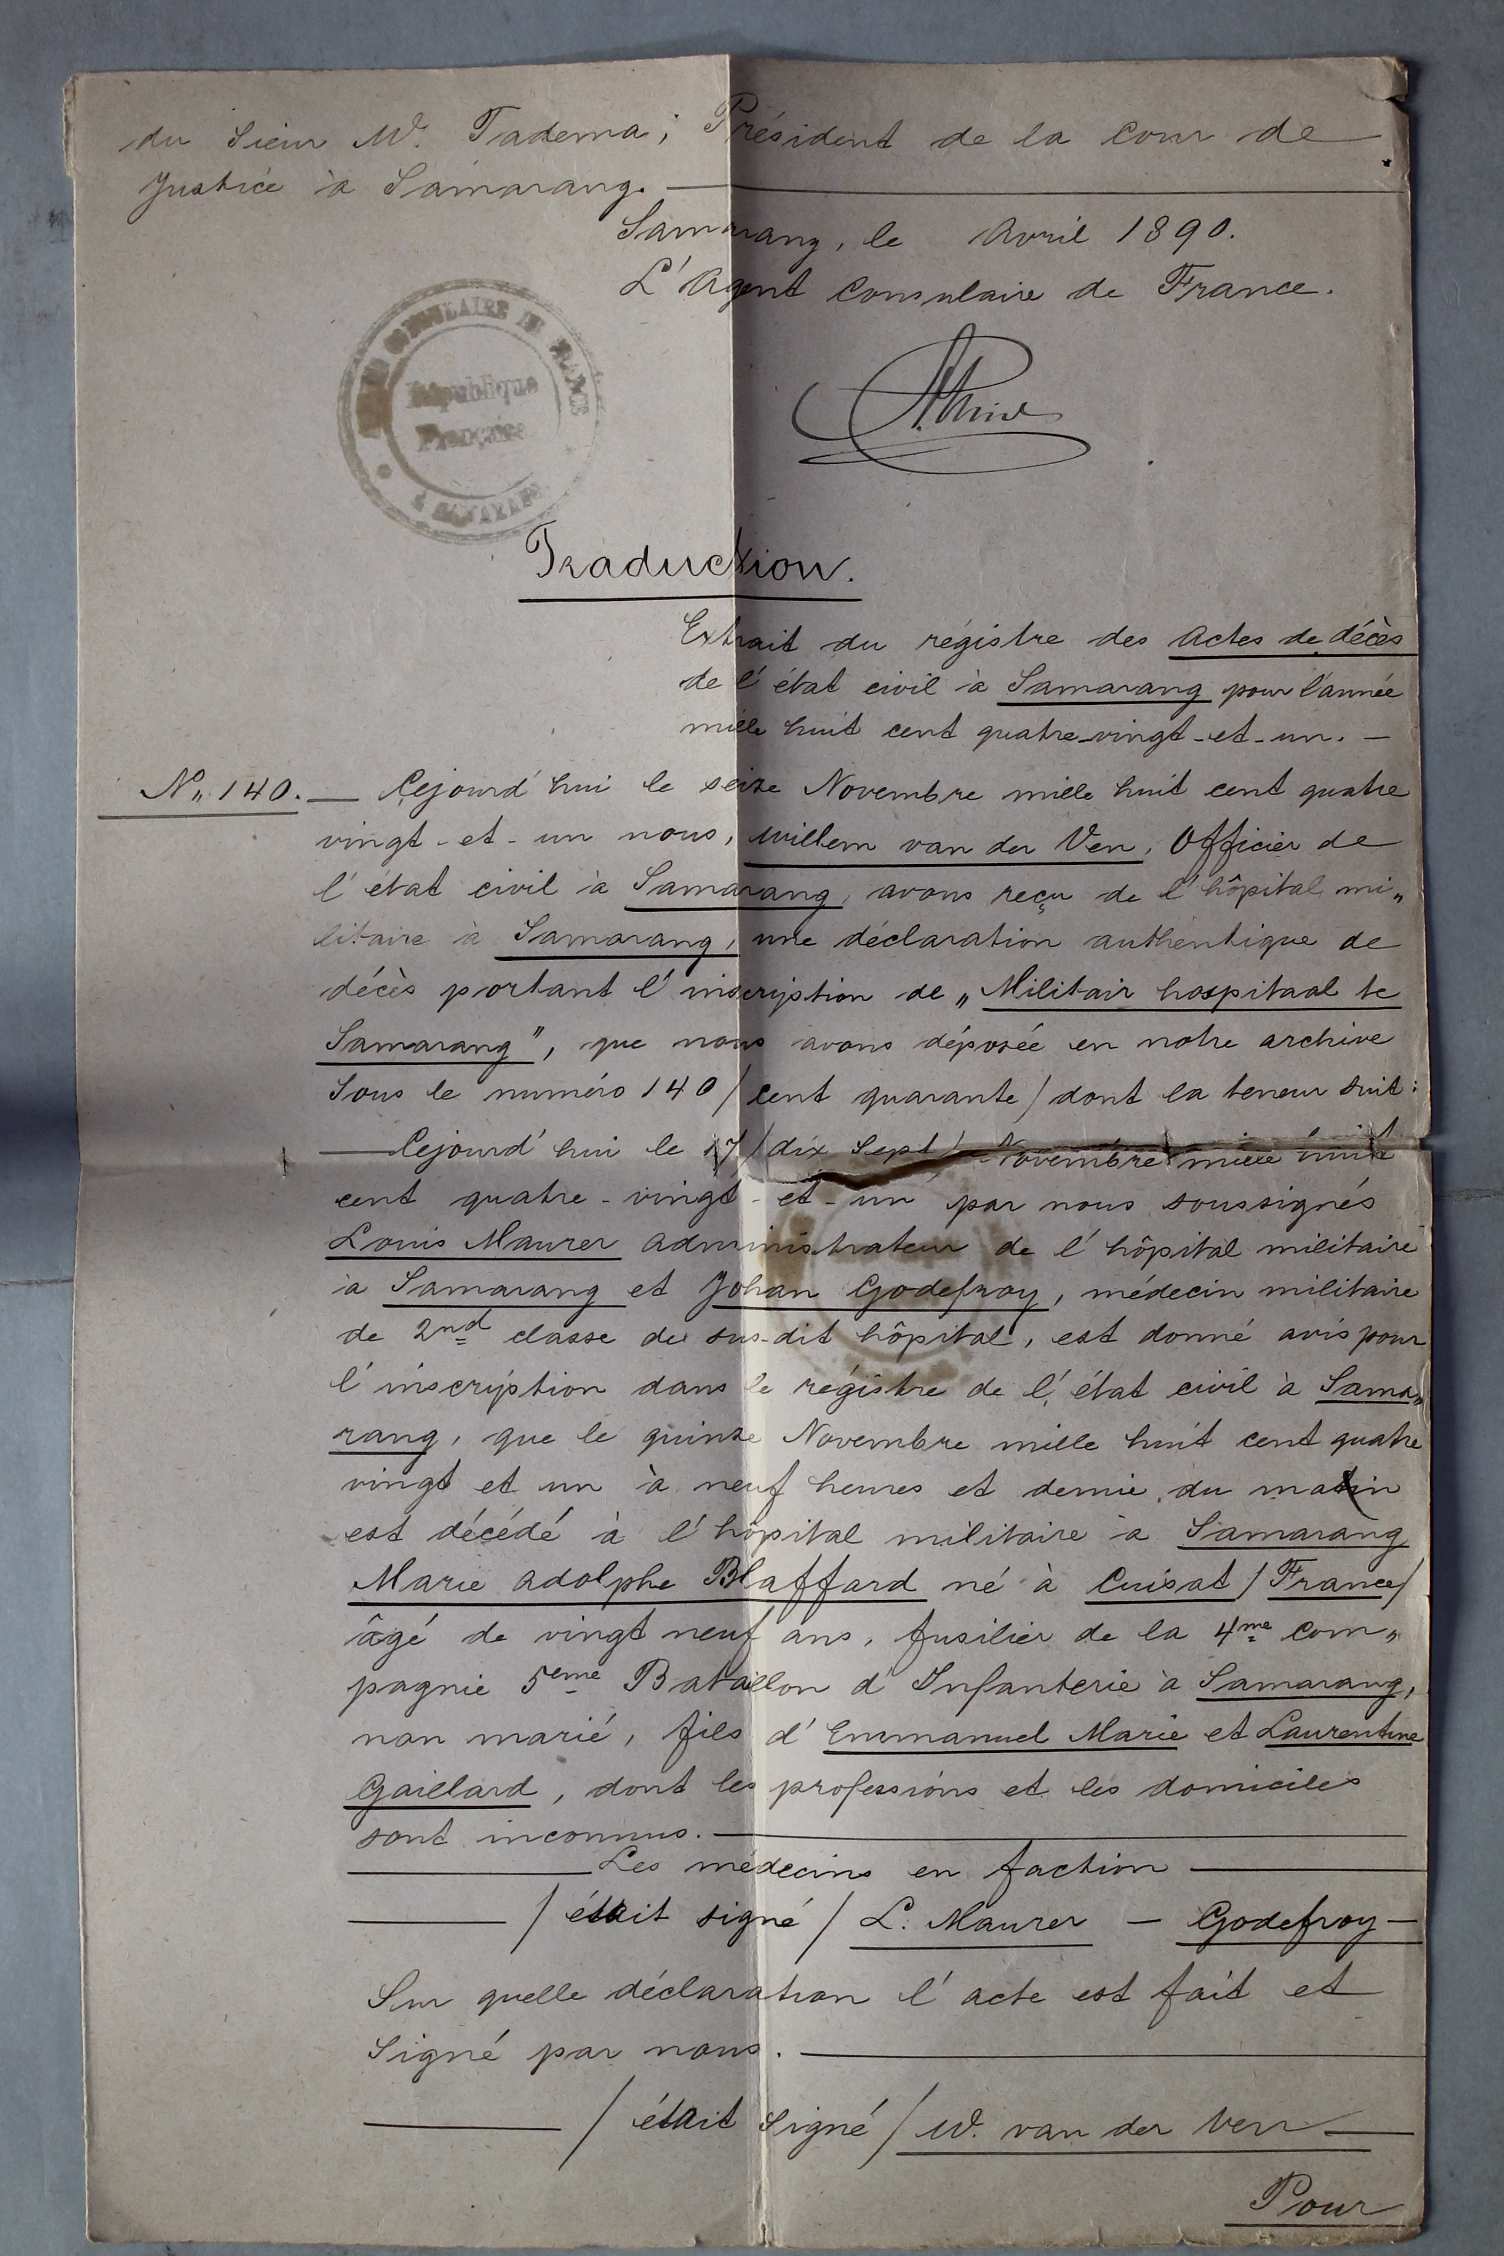 du Sieur W. Tadema; Président de la Cour de
Justice à Samarang.
Samarang, le Avril 1890.
L'Agent Consulaire de France.
AGENCE CONSULAIRE DE FRANCE
République
Française
A SAMARANG
Traduction.
Extrait du régistre des Actes de décès
de l'état civil à Samarang pour l'année
mille huit cent quatre-vingt-et-un. —
N„ 140. — Cejourd'hui le seize Novembre mille huit cent quatre
vingt-et-un nous, Willem van der Ven, Officier de
l'état civil à Samarang, avons reçu de l'hôpital mi„
litaire à Samarang, une déclaration authentique de
décès portant l'inscription de „Militair hospitaal te
Samarang", que nous avons déposée en notre archive
sous le numéro 140 / cent quarante / dont la teneur suit:
— Cejourd'hui le 17 / dix sept / Novembre mille huit
cent quatre-vingt-et-un par nous soussignés
Louis Maurer administrateur de l'hôpital militaire
à Samarang et Johan Godefroy, médecin militaire
de 2nd classe de sus-dit hôpital, est donné avis pour
l'inscription dans le régistre de l'état civil à Sama„
rang, que le quinze Novembre mille huit cent quatre
vingt et un à neuf heures et demie du matin
est décédé à l'hôpital militaire à Samarang
Marie Adolphe Blaffard né à Cuisat / France /
âgé de vingt neuf ans, fusilier de la 4me Com„
pagnie 5eme Bataillon d'Infanterie à Samarang,
non marié, fils d'Emmanuel Marie et Laurentine
Gaillard, dont les professions et les domiciles
sont inconnus. —
— Les médecins en faction —
— / était signé / L. Maurer — Godefroy —
Sur quelle déclaration l'acte est fait et
signé par nous. —
— / était signé / W. van der Ven —
Pour